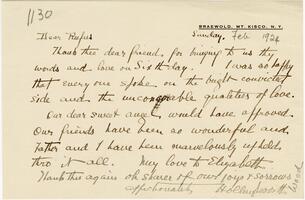 1130
BRAEWOLD, MT. KISCO, N. Y.
Sunday, Feb 1924
Dear Rufus
Thank thee dear friend for bringing to us thy
words and love on Sixth day. I was so happy
that every one spoke on the bright convinced
side and the unconquerable qualities of love.
Our dear sweet angel would have approved.
Our friends have been so wonderful and
Father and I have been marvelously upheld
thro it all. My love to Elizabeth
Thank thee again oh sharer of our joys & sorrows
affectionately Hollingsworth
Wood